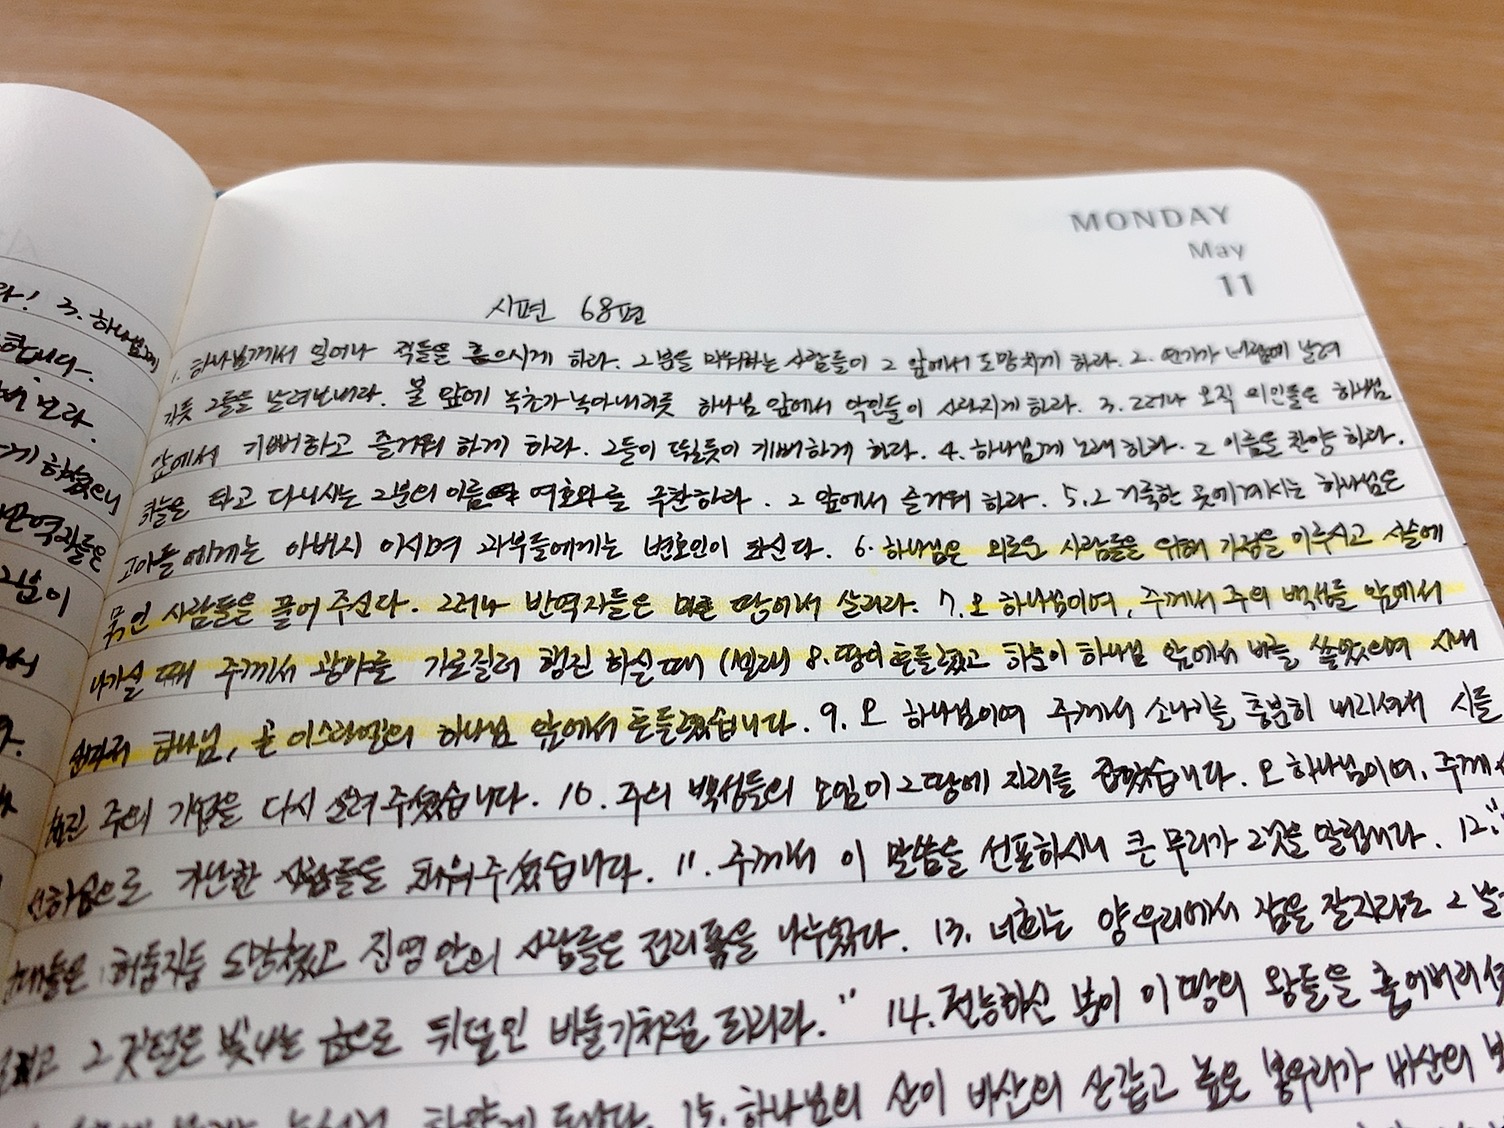 MONDAY
May
11
시편 68편
1. 하나님께서 일어나 적들을 흩으시게 하라. 그분을 미워하는 사람들이 그 앞에서 도망치게 하라. 2. 연기가 바람에 날려
가듯 그들을 날려보내라. 불 앞에 녹초가 녹아내리듯 하나님 앞에서 악인들이 사라지게 하라. 3. 그러나 오직 의인들은 하나님
앞에서 기뻐하고 즐거워 하게 하라. 그들이 뛸듯이 기뻐하게 하라. 4. 하나님께 노래하라. 그 이름을 찬양하라.
하늘을 타고 다니시는 그분의 이름 여호와를 극찬하라. 그 앞에서 즐거워 하라. 5. 그 거룩한 곳에 계시는 하나님은
고아들에게는 아버지 이시며 과부들에게는 변호인이 되신다. 6. 하나님은 외로운 사람들을 위해 가정을 이루시고 사슬에
묶인 사람들을 풀어 주신다. 그러나 반역자들은 메마른 땅에서 살리라. 7. 오 하나님이여, 주께서 주의 백성들 앞에서
나가실 때 주께서 광야를 가로질러 행진 하실 때 (셀라) 8. 땅이 흔들렸고 하늘이 하나님 앞에서 비를 쏟았으며 시내
산마저 하나님, 곧 이스라엘의 하나님 앞에서 흔들렸습니다. 9. 오 하나님이여 주께서 소나기를 충분히 내리셔서 시들
주의 기업을 다시 살려 주셨습니다. 10. 주의 백성들의 모임이 그 땅에 자리를 잡았습니다. 오 하나님이여, 주께서
선하심으로 가난한 사람들을 채워 주셨습니다. 11. 주께서 이 말씀을 선포하시니 큰 무리가 그것을 알립니다. 12. "
군대들은 허둥지둥 도망쳤고 진영 안의 사람들은 전리품을 나누었다. 13. 너희는 양 우리에서 잠을 잘지라도 그 날
그 깃털은 빛나는 금으로 뒤덮인 비둘기처럼 되리라." 14. 전능하신 분이 이 땅의 왕들을 흩어버리셨
15. 하나님의 산이 바산의 산 같고 높은 봉우리가 바산의